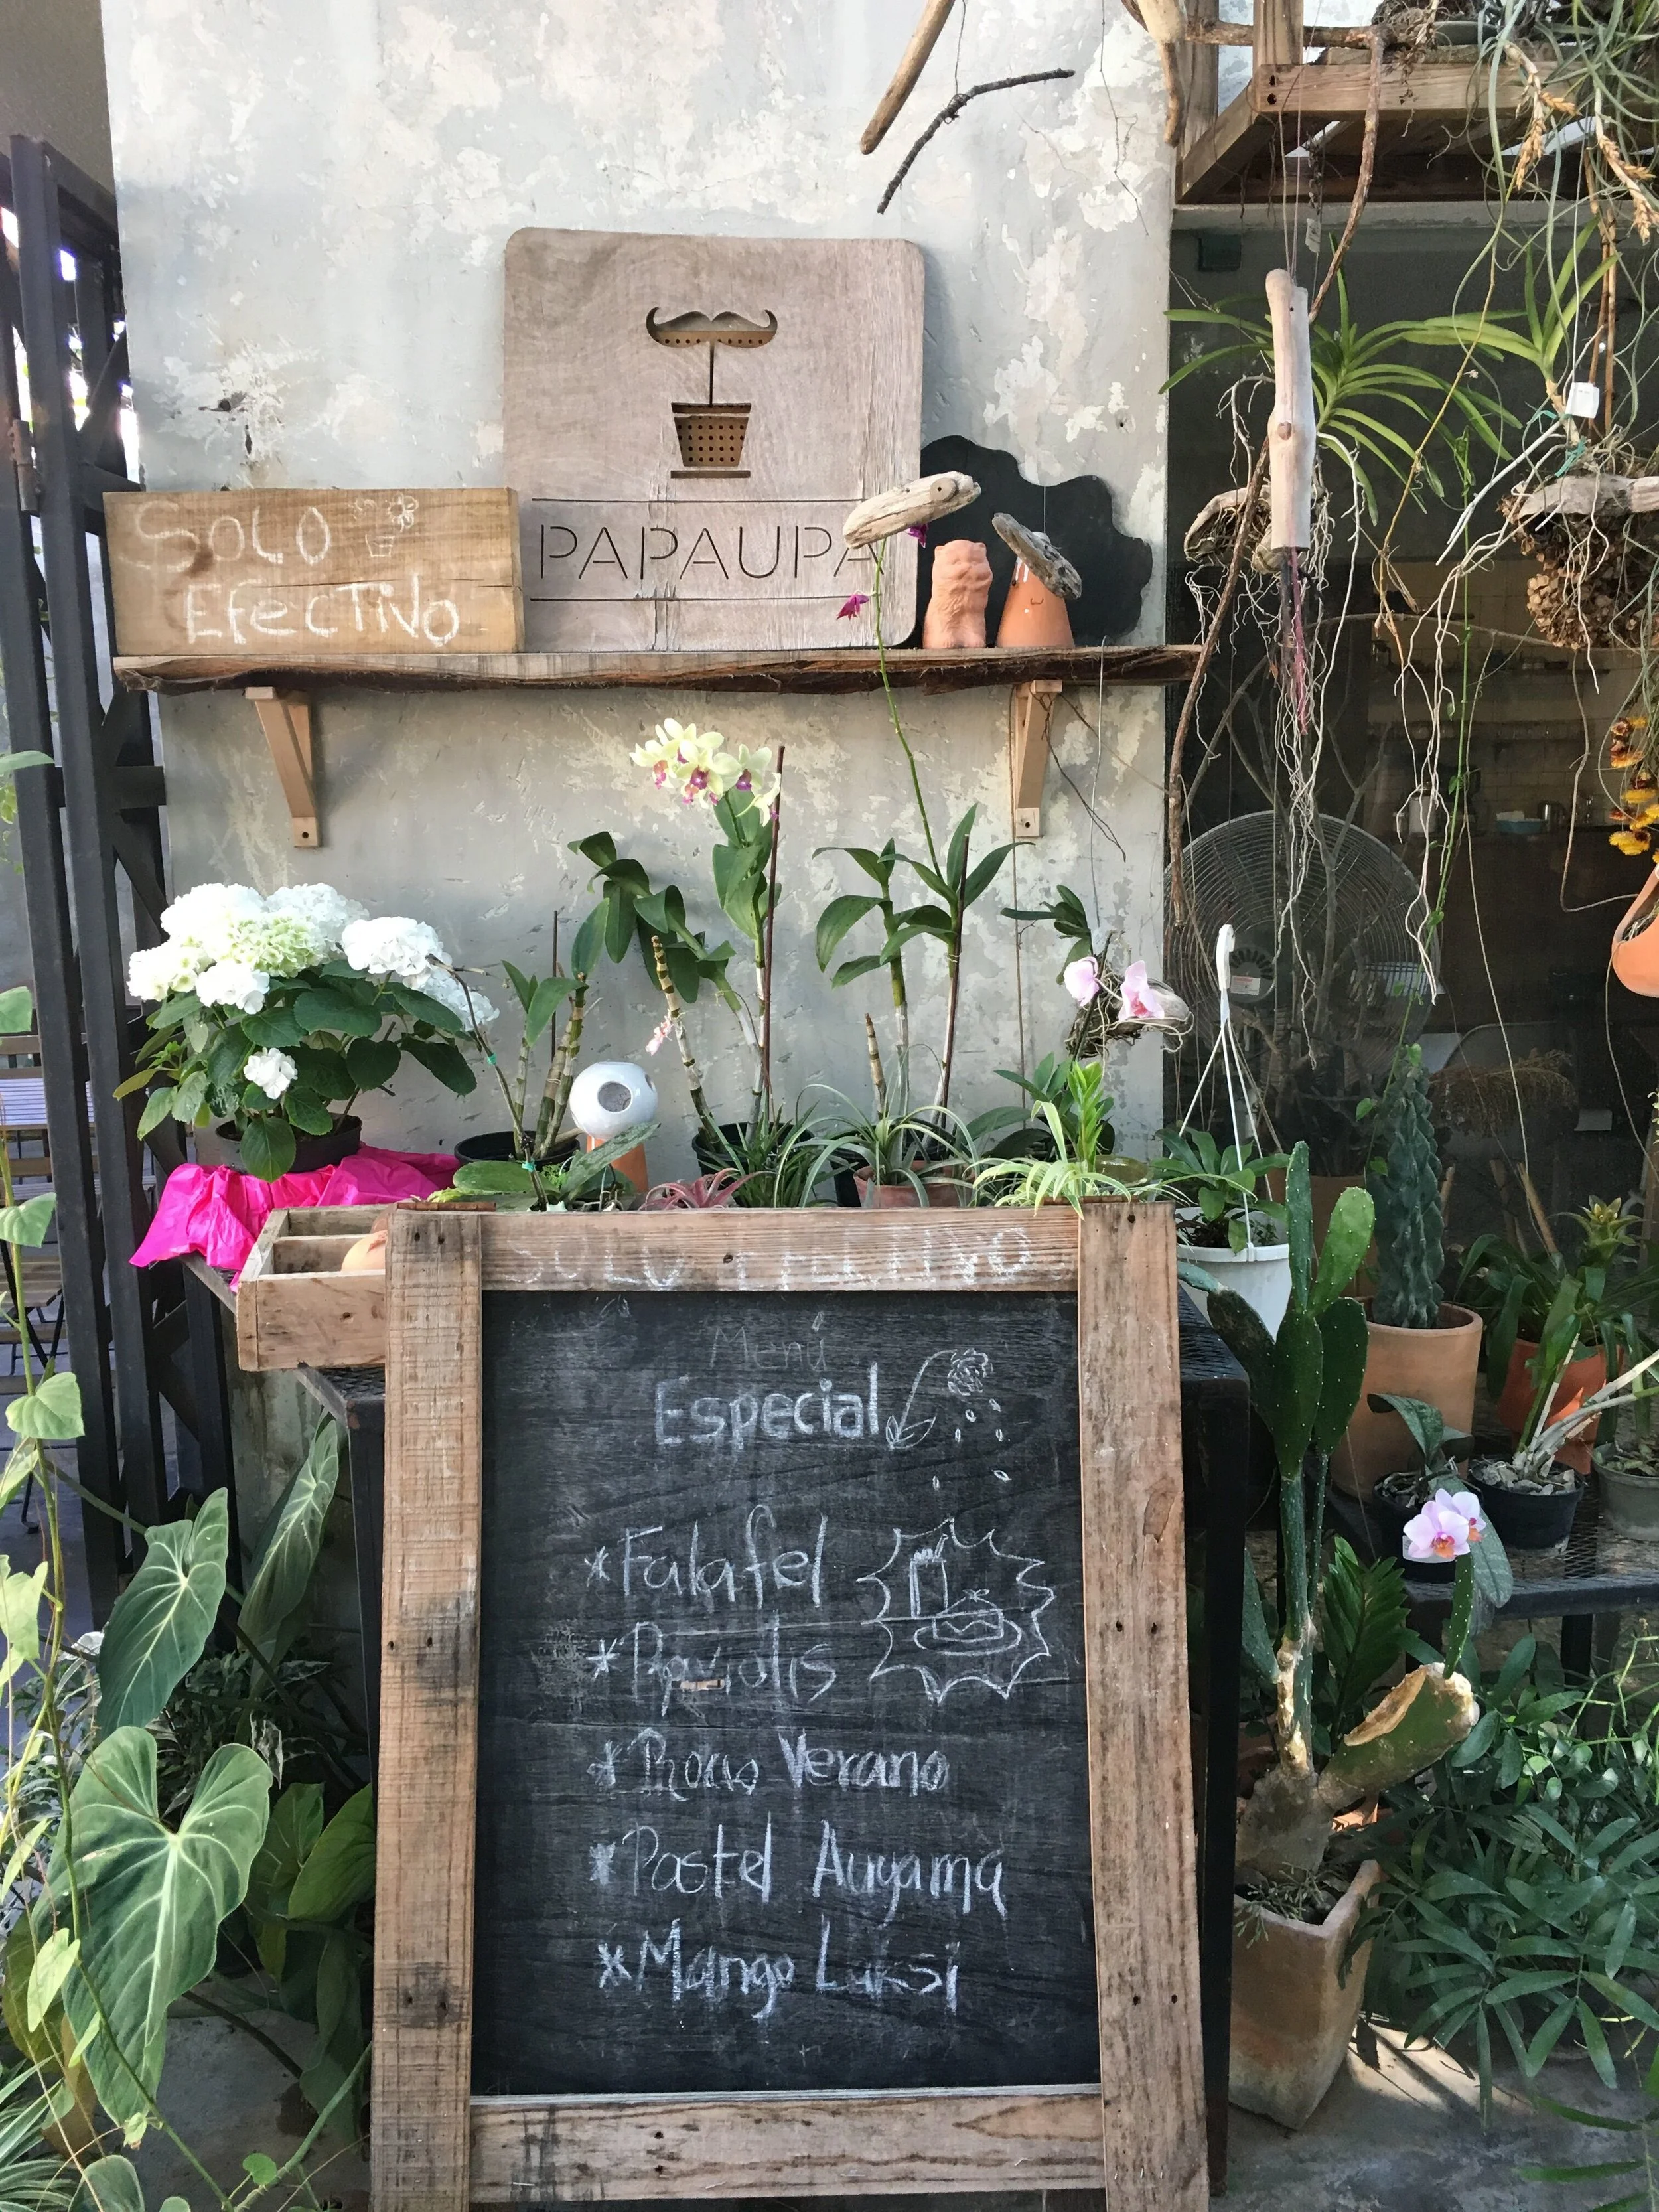 SOLO
EfecTivo
PAPAUPA
SOLO EFECTIVO
Menú
Especial
*Falafel
*Raviolis
*Rous Verano
*Pastel Auyama
*Mango Luksi